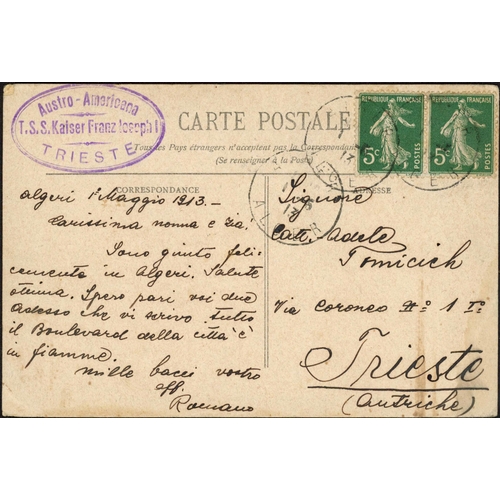 Austro-Americana
T.S.S. Kaiser Franz Joseph I
TRIESTE
CARTE POSTALE
Tous les Pays étrangers n'acceptent pas la Correspondance
(Se renseigner à la Poste)
CORRESPONDANCE
ADRESSE
REPUBLIQUE FRANÇAISE
5c
POSTES
REPUBLIQUE FRANÇAISE
5c
POSTES
ALGER
Algeri 1 Maggio 1913.-
Carissima nonna e zia.
Sono giunto feli-
cemente in Algeri. Salute
ottima. Spero pari voi due
Adesso che vi scrivo tutto
il Boulevard della città è
in fiamme.
Mille bacci vostro
aff.
Romano
Signore
Catt. Adele
Tomicich
Via Coroneo No 1 Io
Trieste
(Autriche)